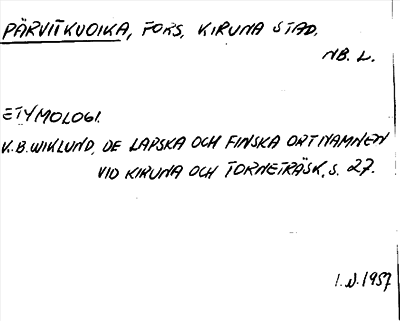 PÄRVITKUOIKA, FORS, KIRUNA STAD.
NB. L.
ETYMOLOGI.
K.B. WIKLUND, DE LAPSKA OCH FINSKA ORTNAMNEN
VID KIRUNA OCH TORNETRÄSK, S. 27.
I.N. 1957